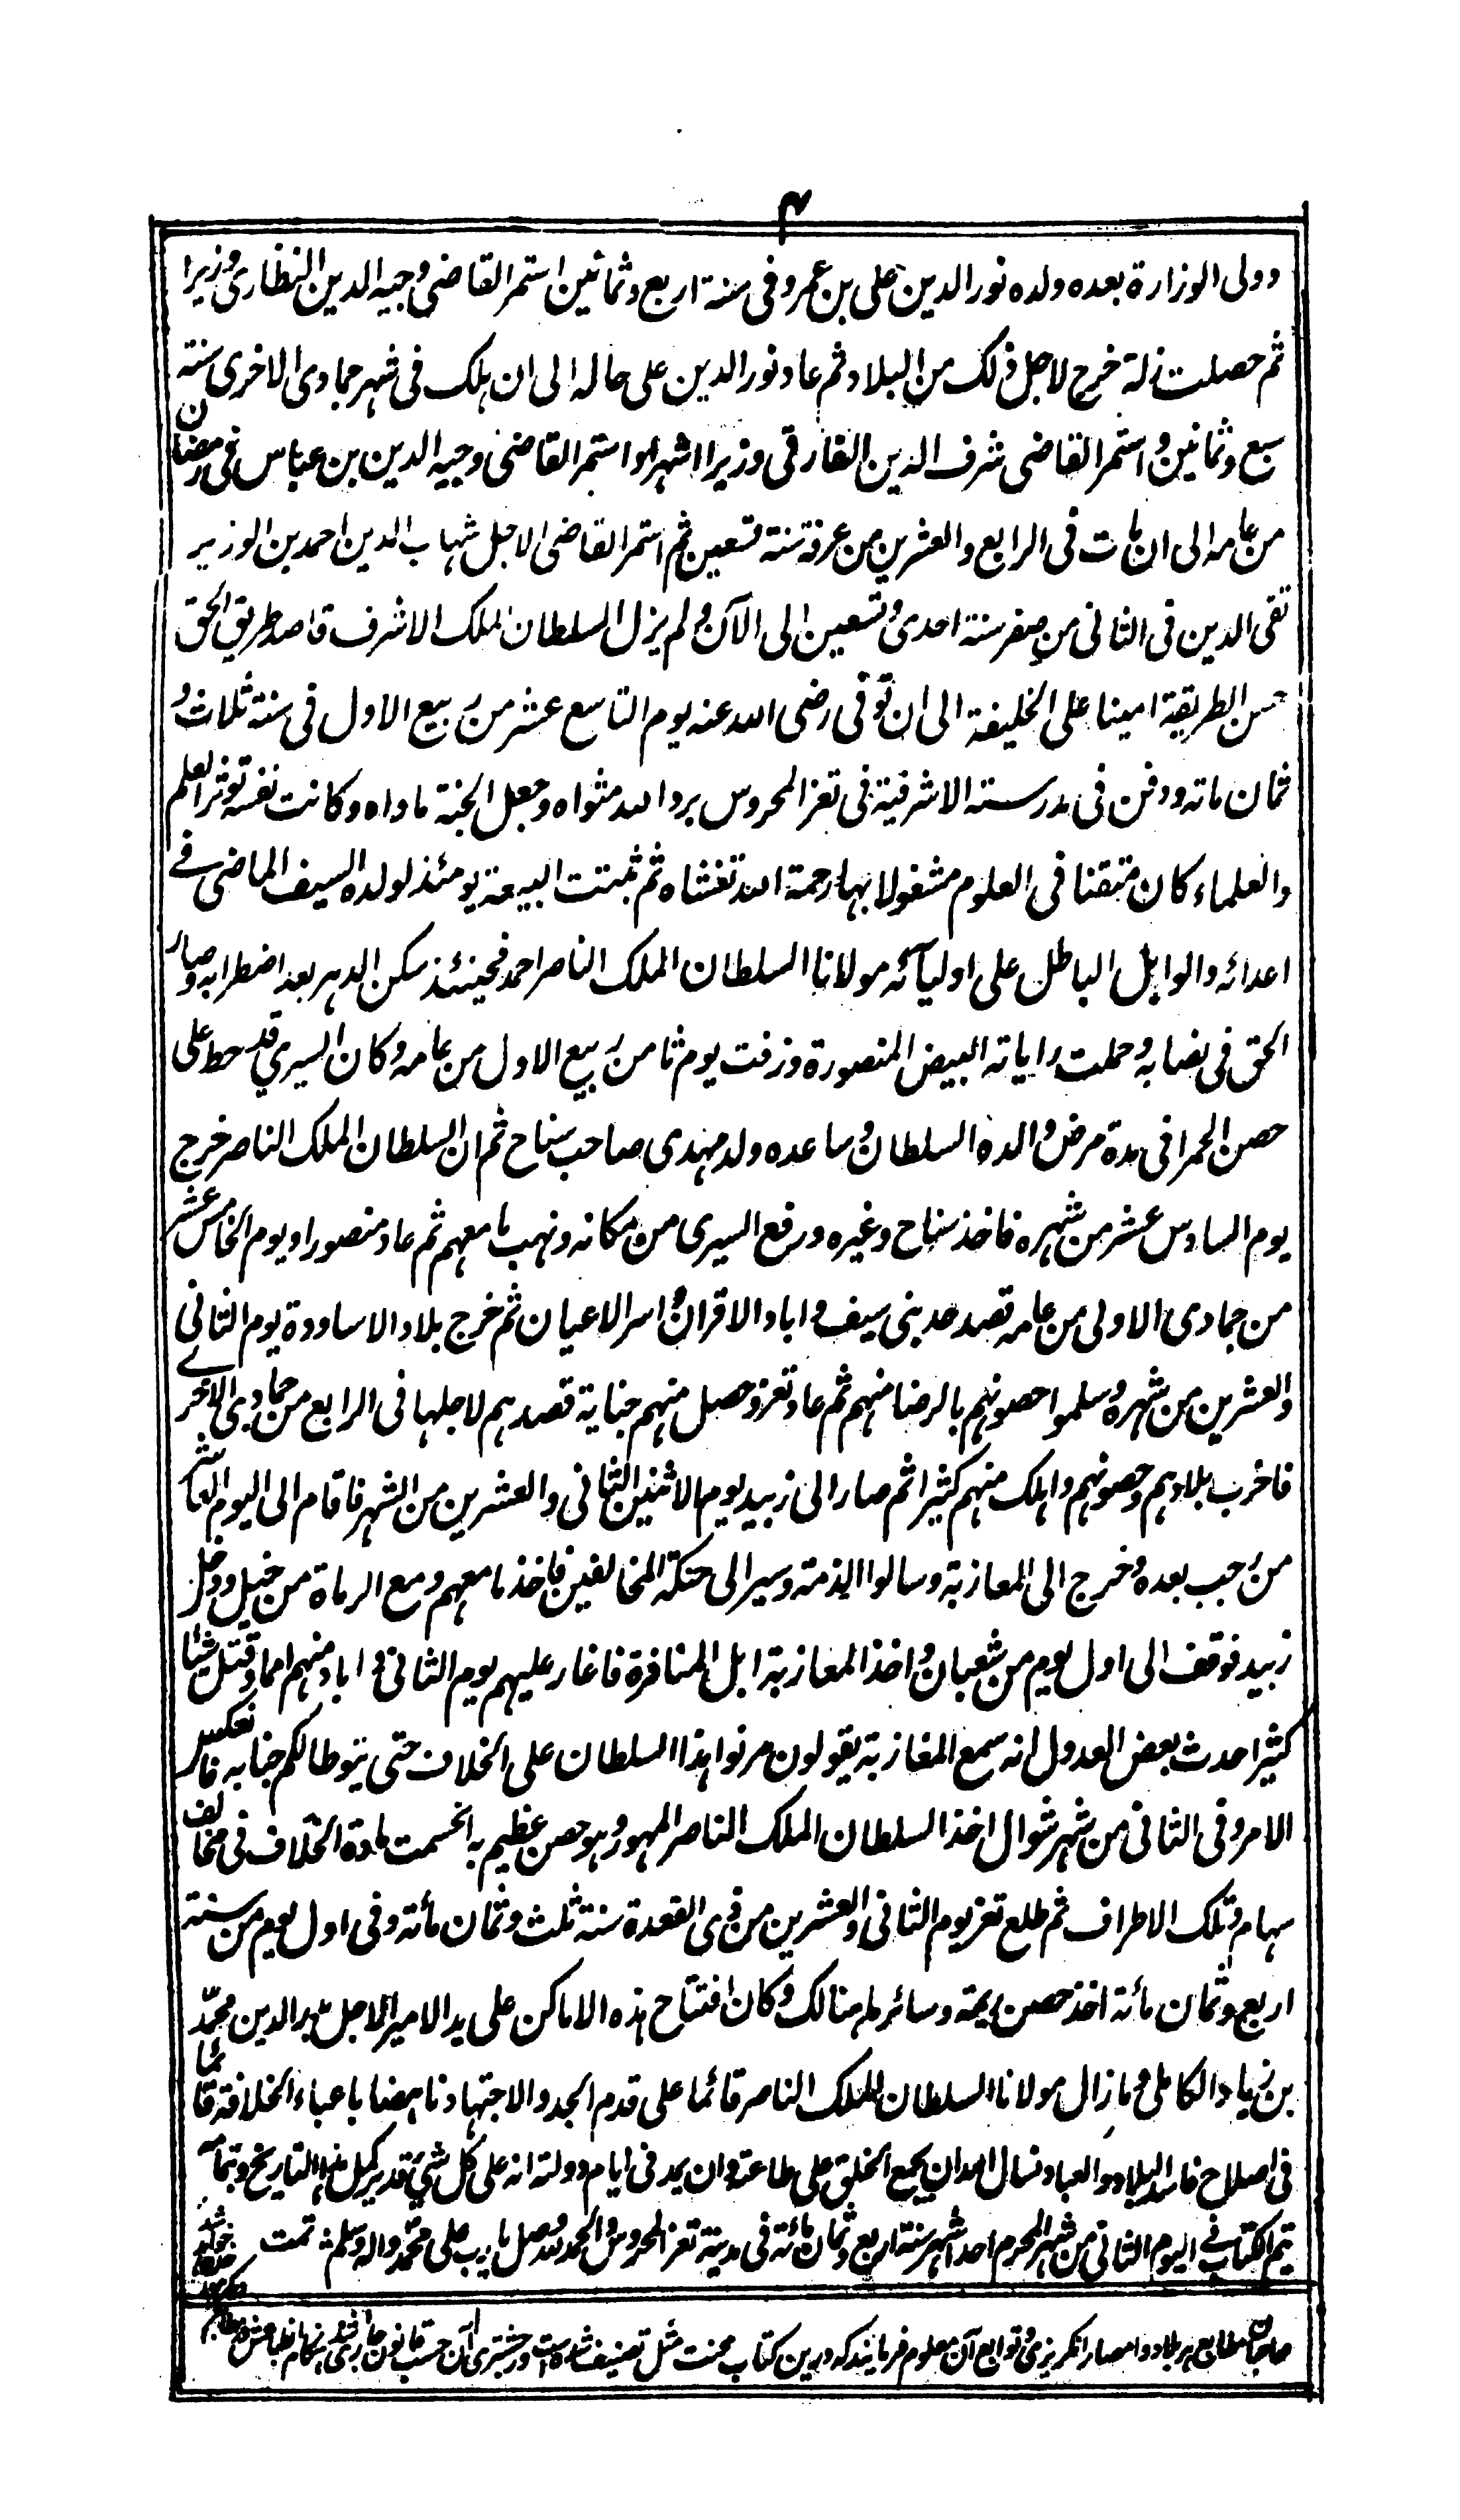 ۴
وولى الوزارة بعده ولده نور الدين على بن عمر وفى سنة اربع وثمانين استمر القاضى وجيه الدين النظارى وزيرا
ثم حصلت زلة خرج لاجل ذلك من البلاد ثم عاد نور الدين على حاله الى ان هلك فى شهر جمادى الاخرى سنة
سبع وثمانين واستمر القاضى شرف الدين الفارقى وزيرا اشهرا واستمر القاضى وجيه الدين بن عباس فى رمضان
من عامه الى ان مات فى الرابع والعشرين من عرفة سنة تسعين ثم استمر القاضى الاجل شهاب الدين احمد بن الوزير
تقى الدين فى الثانى من صفر سنة احدى وتسعين الى الآن ولم يزل السلطان الملك الاشرف قاصد طريق الحق
حسن الطريقة امينا على الخليفة الى ان توفى رضى الله عنه يوم التاسع عشر من ربيع الاول فى سنة ثلاث و
ثمان مائه ودفن فى مدرسته الاشرفية فى تعز المحروس برد الله مثواه وجعل الجنة ماواه وكانت نفسه توثر العلم
والعلماء كان متقنا فى العلوم مشغولا بها رحمة الله تغشاه ثم ثبتت البيعة يومئذ لولده السيف الماضى فے
اعدائه والوابل الباطل على اوليآئه مولانا السلطان الملك الناصر احمد فحينئذ سكن الدهر بعد اضطرابه وصار
الحق فى نصابه وحملت راياته البيض المنصورة وزفت يوم ثامن ربيع الاول من عامه وكان السيرى قد حط على
حصن الحمرا فى مدة مرض والده السلطان وساعده ولد مهدى صاحب سناح ثم ان السلطان الملك الناصر خرج
يوم السادس عشر من شهره فاخذ سناح وغيره ورفع السيرى من مكانه ونهب ما معهم ثم عاد منصورا ويوم الخامس عشر
من جمادى الاولى من عامه قصد حد بنى سيف واباد الاقران واسر الاعيان ثم خرج بلاد الاساودة يوم الثانى
والعشرين من شهره وسلموا حصونهم بالرضا منهم ثم عاد تعز وحصل منهم جناية قصدهم لاجلها فى الرابع من جمادى الاخرے
فاخرب بلادهم وحصونهم واهلك منهم كثيرا ثم صار الى زبيد يوم الاثنين الثانى والعشرين من الشهر فاقام الى اليوم العاشر
من رجب بعده وخرج الى المعازبة وسالوا الذمة وسير الى حنكة المخالفين فاخذ ما معهم ومع الرماة من خيل ودخل
زبيد فوقف الى اول يوم من شعبان واخذ المعازبة ابل المنافرة فاغار عليهم يوم الثانى واباد منهم امما وقتل شيئا
كثيرا حدث بعض العدول انه سمع المغازبة يقولون مرنوا هذا السلطان على الخلاف حتى يتوطا لكم جنابه فانعكس
الامر وفى الثانى من شهر شوال اخذ السلطان الملك الناصر المهور وهو حصن عظيم به انحسمت مادة الخلاف فى مخالف
سهام وتلك الاطراف ثم طلع تعز يوم الثانى والعشرين من ذى القعدة سنة ثلث وثمان مأئة وفى اول يوم من سنة
اربع وثمان مأئة اخذ حصن ريمة وسائر ما هنالك وكان افتتاح هذه الاماكن على يد الامير الاجل بدر الدين محمد
بن زياد الكاملى وما زال مولانا السلطان الملك الناصر قائما على قدم الجد والاجتهاد ناهضا باعباء الخلافة قائما
فى اصلاح فاسد البلاد والعباد نسال الله ان يجمع الخلق على طاعته وان يمد فى ايام دولته انه على كل شئ قدير كمل هذا التاريخ وبتمامه
تم الكتاب فے اليوم الثانى من شهر المحرم احد اشهر سنة اربع وثمان مائة فى مدينة تعز المحروس والحمد لله وصل يا رب على محمد واله وسلم تمت
صاحبان مطابع هر بلاد وامصار انگريزى وتوابع آن معلوم فرمايند كه درين كتاب محنت مثل تصنيف شده است ورجسترى آن حسب قانون